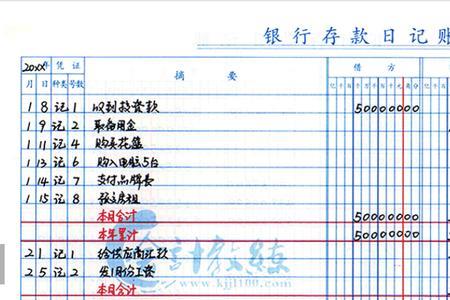 银行存款日记账
20XX年 凭证 摘要 借方
月 日 种类 号数 亿 千 百 十 万 千 百 十 元 角 分 亿 千 百
1 8 记 1 收到投资款 50000000
1 9 记 2 取备用金
1 11 记 4 购买花篮
1 13 记 6 购入电脑5台
1 14 记 7 支付品牌费
1 15 记 8 预交房租
本月合计 50000000
本年累计 50000000
2 1 记 1 给供应商汇款
2 5 记 2 发1月份工资
本月合计
会计教练
www.kjjl100.com